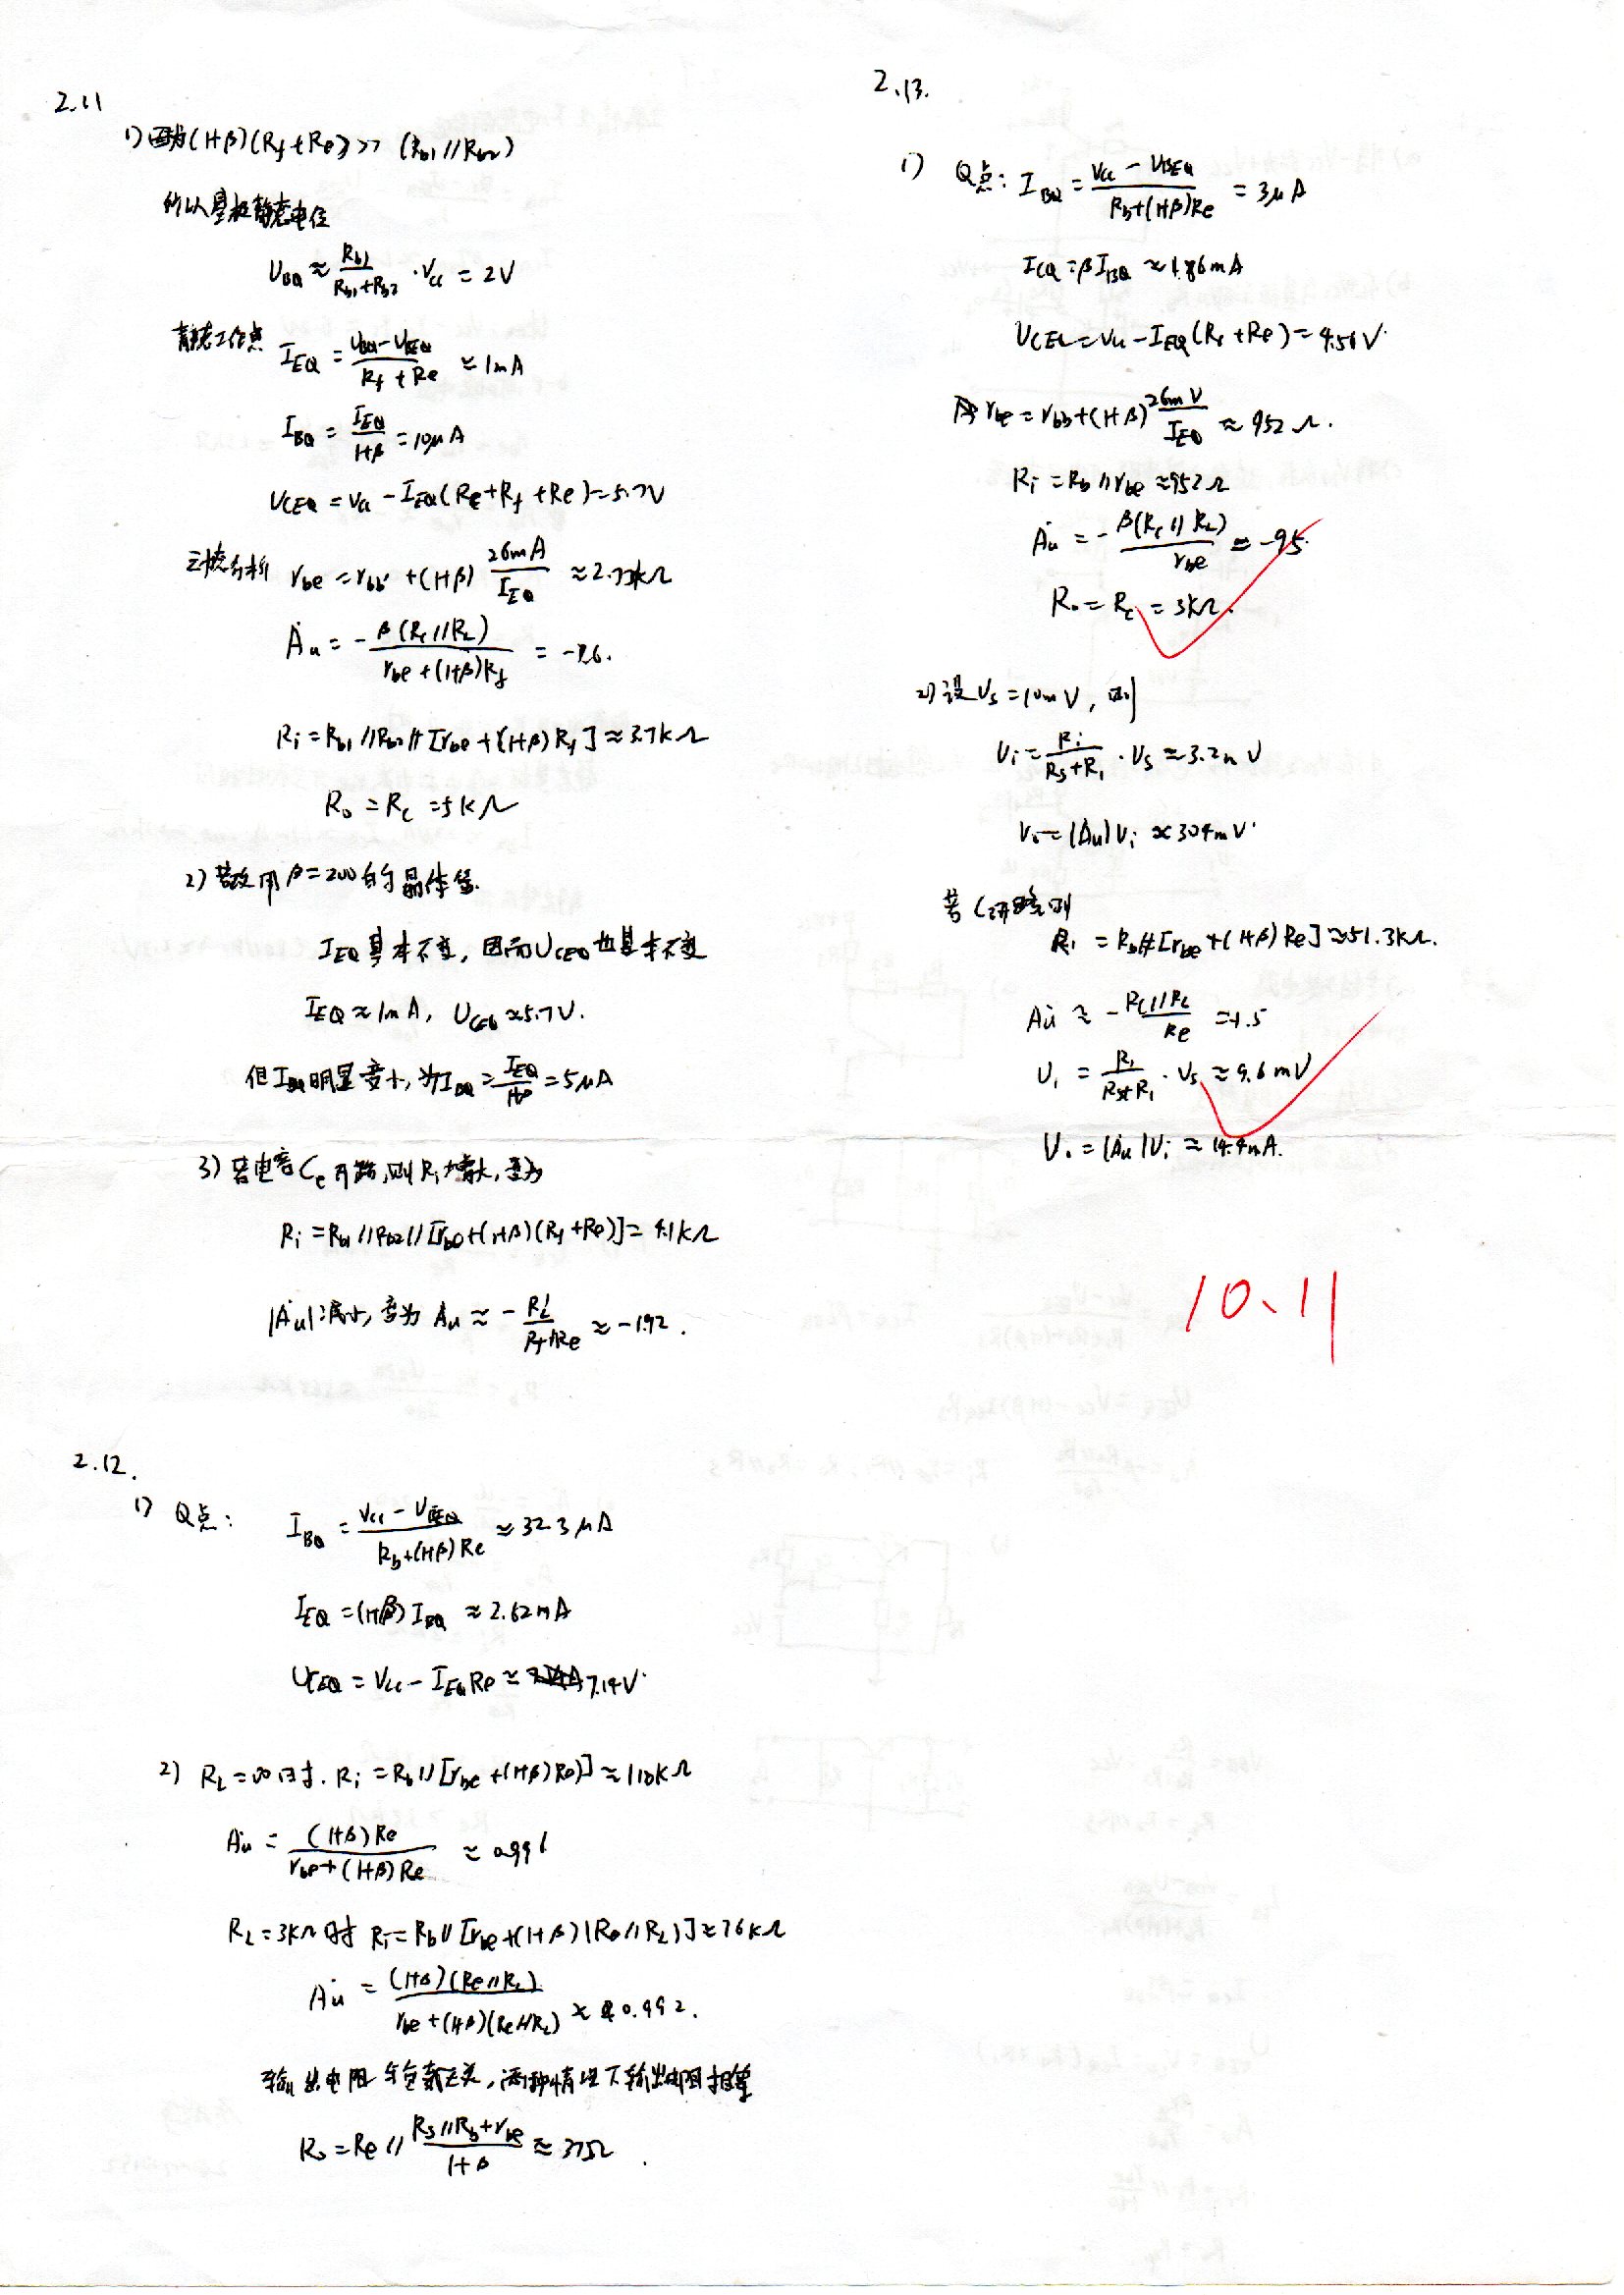 2.11
1) 因为(1+β)(Rf+Re)>>(Rb1//Rb2)
所以基极静态电位
UBQ≈Rb1/(Rb1+Rb2)·Vcc=2V
静态工作点 IEQ=(UBQ-UBEQ)/(Rf+Re)≈1mA
IBQ=IEQ/(1+β)=10μA
UCEQ=Vcc-IEQ(Rc+Rf+Re)=5.7V
动态分析 rbe=rbb'+(1+β)26mA/IEQ≈2.73kΩ
Au=-β(Rc//RL)/(rbe+(1+β)Rf)=-7.6.
Ri=Rb1//Rb2//[rbe+(1+β)Rf]≈3.7kΩ
Ro=Rc=5kΩ
2) 若改用β=200的晶体管.
IEQ基本不变,因而UCEQ也基本不变
IEQ≈1mA, UCEQ≈5.7V.
但IBQ明显变小,为IBQ=IEQ/(1+β)=5μA
3) 若电容Ce开路,则Ri增大,变为
Ri=Rb1//Rb2//[rbe+(1+β)(Rf+Re)]=4.1kΩ
|Au|减小,变为 Au≈-RL'/(Rf+Re)≈-1.92.
2.12.
1) Q点: IBQ=(Vcc-UBEQ)/(Rb+(1+β)Re)≈32.3μA
IEQ=(1+β)IBQ≈2.62mA
UCEQ=Vcc-IEQRe≈7.14V
2) RL=∞时. Ri=Rb//[rbe+(1+β)Re)]≈110kΩ
Au=(1+β)Re/(rbe+(1+β)Re)≈0.996
RL=3kΩ时 Ri=Rb//[rbe+(1+β)(Re//RL)]≈76kΩ
Au=(1+β)(Re//RL)/(rbe+(1+β)(Re//RL))≈0.992.
输出电阻与负载无关,两种情况下输出电阻相等
Ro=Re//(Rs//Rb+rbe)/(1+β)≈37Ω.
2.13.
1) Q点: IBQ=(Vcc-UBEQ)/(Rb+(1+β)Re)=3μA
ICQ=βIBQ≈1.86mA
UCEQ=Vcc-IEQ(Rc+Re)=4.56V
rbe=rbb+(1+β)26mV/IEQ≈952Ω.
Ri=Rb//rbe≈952Ω
Au=-β(Rc//RL)/rbe≈-95.
Ro=Rc=3kΩ.
2) 设Us=10mV,则
Ui=Ri/(Rs+Ri)·Us≈3.2mV
Uo=|Au|Ui≈304mV
若C开路则
Ri=Rb//[rbe+(1+β)Re]≈51.3kΩ.
Au≈-Rc//RL/Re=-1.5
Ui=Ri/(Rs+Ri)·Us≈9.6mV
Uo=|Au|Ui≈14.4mA.
10.11